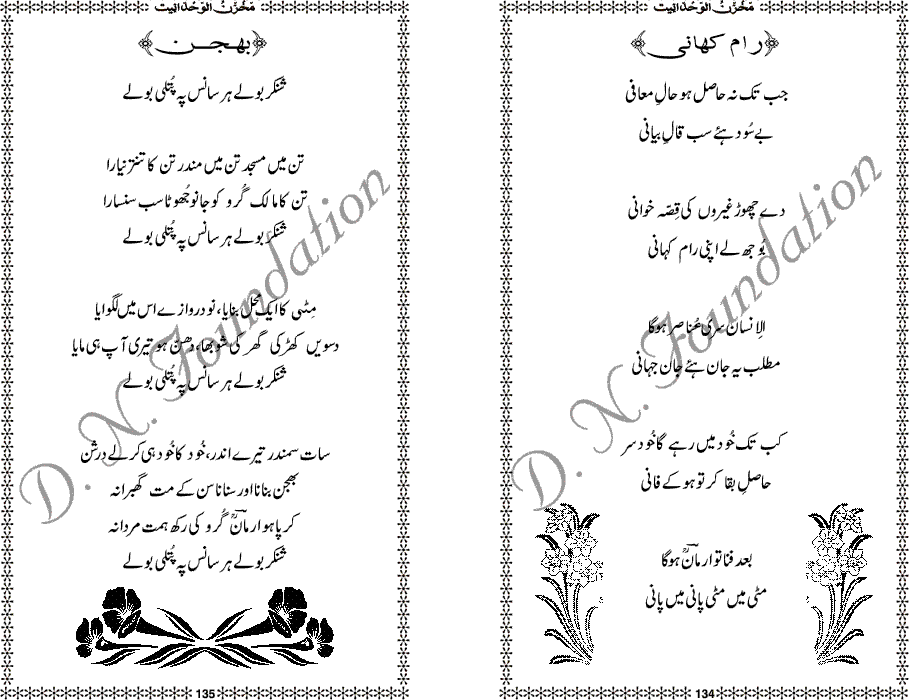 مَخْزَنُ الْوَحْدَانِیت
رام کھانی
جب تک نہ حاصل ہو حالِ معافی
بے سُود ہئے سب قالِ بیانی
دے چھوڑ غیروں کی قِصّہ خوانی
بُوجھ لے اپنی رام کہانی
الِانسان سری عُناصر ہوگا
مطلب یہ جان ہئے جان جہانی
کب تک خُود میں رہے گا خُود سر
حاصلِ بقا کر تو ہو کے فانی
بعد فنا تو ارمانؔ ہوگا
مٹی میں مٹی پانی میں پانی
134
مَخْزَنُ الْوَحْدَانِیت
بھجن
شنکر بولے ہر سانس پہ پُتلی بولے
تن میں مسجد تن میں مندر تن کا تنتر نیارا
تن کا مالک گُرو کو جانو جُھوٹا سب سنسارا
شنکر بولے ہر سانس پہ پُتلی بولے
مِٹی کا ایک محل بنایا، نو دروازے اس میں لگوایا
دسویں کھڑکی گھر کی شوبھا، دھن ہو تیری آپ ہی مایا
شنکر بولے ہر سانس پہ پُتلی بولے
سات سمندر تیرے اندر، خُود کا خُود ہی کرلے درشن
بھجن بنانا اور سنانا سن کے مت گھبرانہ
کرپا ہو ارمانؔ گُرو کی رکھ ہمت مردانہ
شنکر بولے ہر سانس پہ پُتلی بولے
135
D. N. Foundation
D. N. Foundation